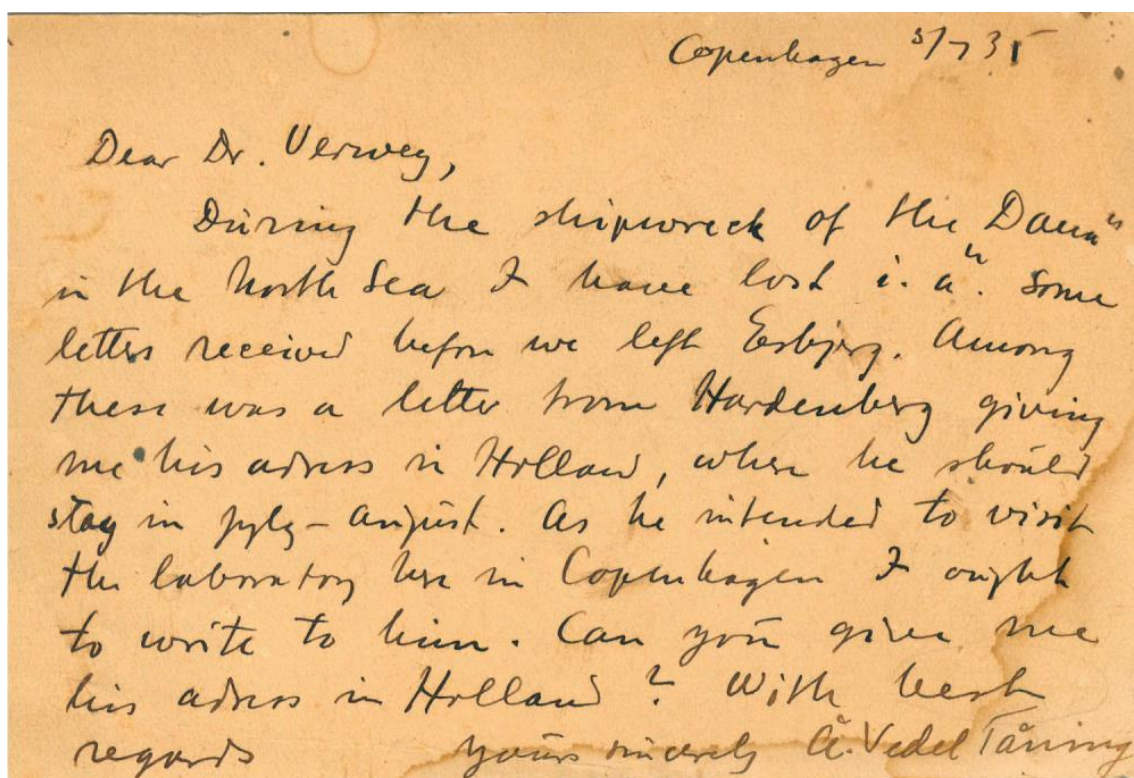 Copenhagen 5/7 35
Dear Dr. Verwey,
During the shipwreck of the Dana"
in the North Sea I have lost "i. a". some
letters received before we left Esbjerg. Among
these was a letter from Hardenberg giving
me his adress in Holland, where he should
stay in july - august. As he intended to visit
the laboratory here in Copenhagen I ought
to write to him. Can you give me
his adress in Holland? With best
regards yours sincerely Å. Vedel Tåning